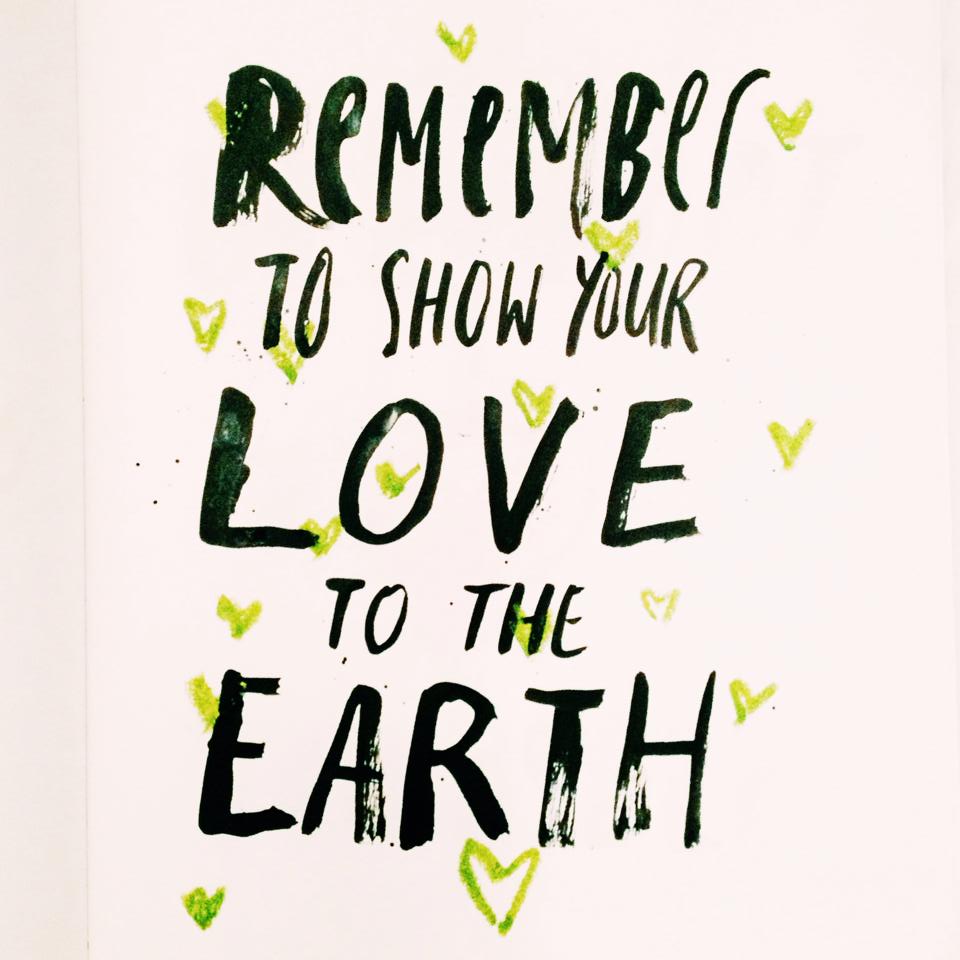 Remember
TO SHOW YOUR
LOVE
TO THE
EARTH